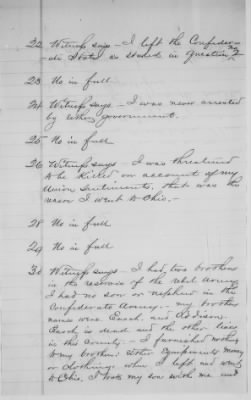 22 Witness says - I left the Confeder-
ate States as stated in question 2
23 No in full
24 Witness says - I was never arrested
by either government.
25 No in full
26 Witness says - I was threatened
to be killed on account of my
Union sentiments, that was the
reason I went to Ohio.
28 No in full
29 No in full
Witness says - I had two brothers
in the service of the rebel Army
I had no son or nephew in the
Confederate Army - my brothers
names were Enoch, and Addison.
Enoch is dead and the other lives
in this county. - I furnished nothing
to my brothers. Either Equipments money
or clothing, when I left and went
to Ohio, I took my son with me and